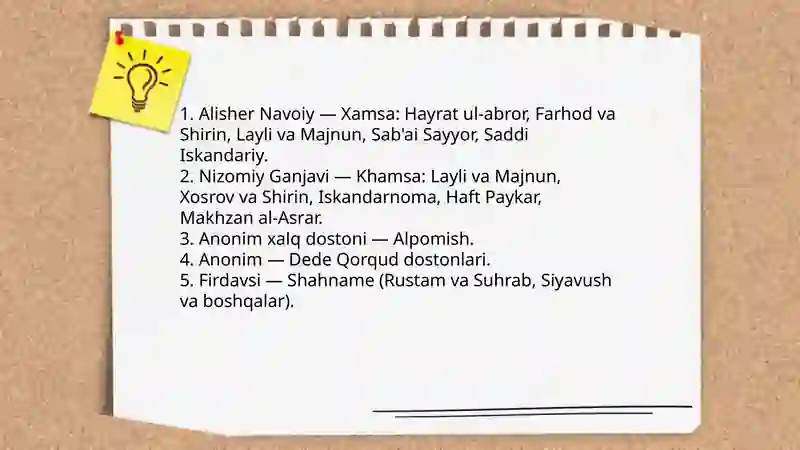 1. Alisher Navoiy — Xamsa: Hayrat ul-abror, Farhod va
Shirin, Layli va Majnun, Sab'ai Sayyor, Saddi
Iskandariy.
2. Nizomiy Ganjavi — Khamsa: Layli va Majnun,
Xosrov va Shirin, Iskandarnoma, Haft Paykar,
Makhzan al-Asrar.
3. Anonim xalq dostoni — Alpomish.
4. Anonim — Dede Qorqud dostonlari.
5. Firdavsi — Shahname (Rustam va Suhrab, Siyavush
va boshqalar).